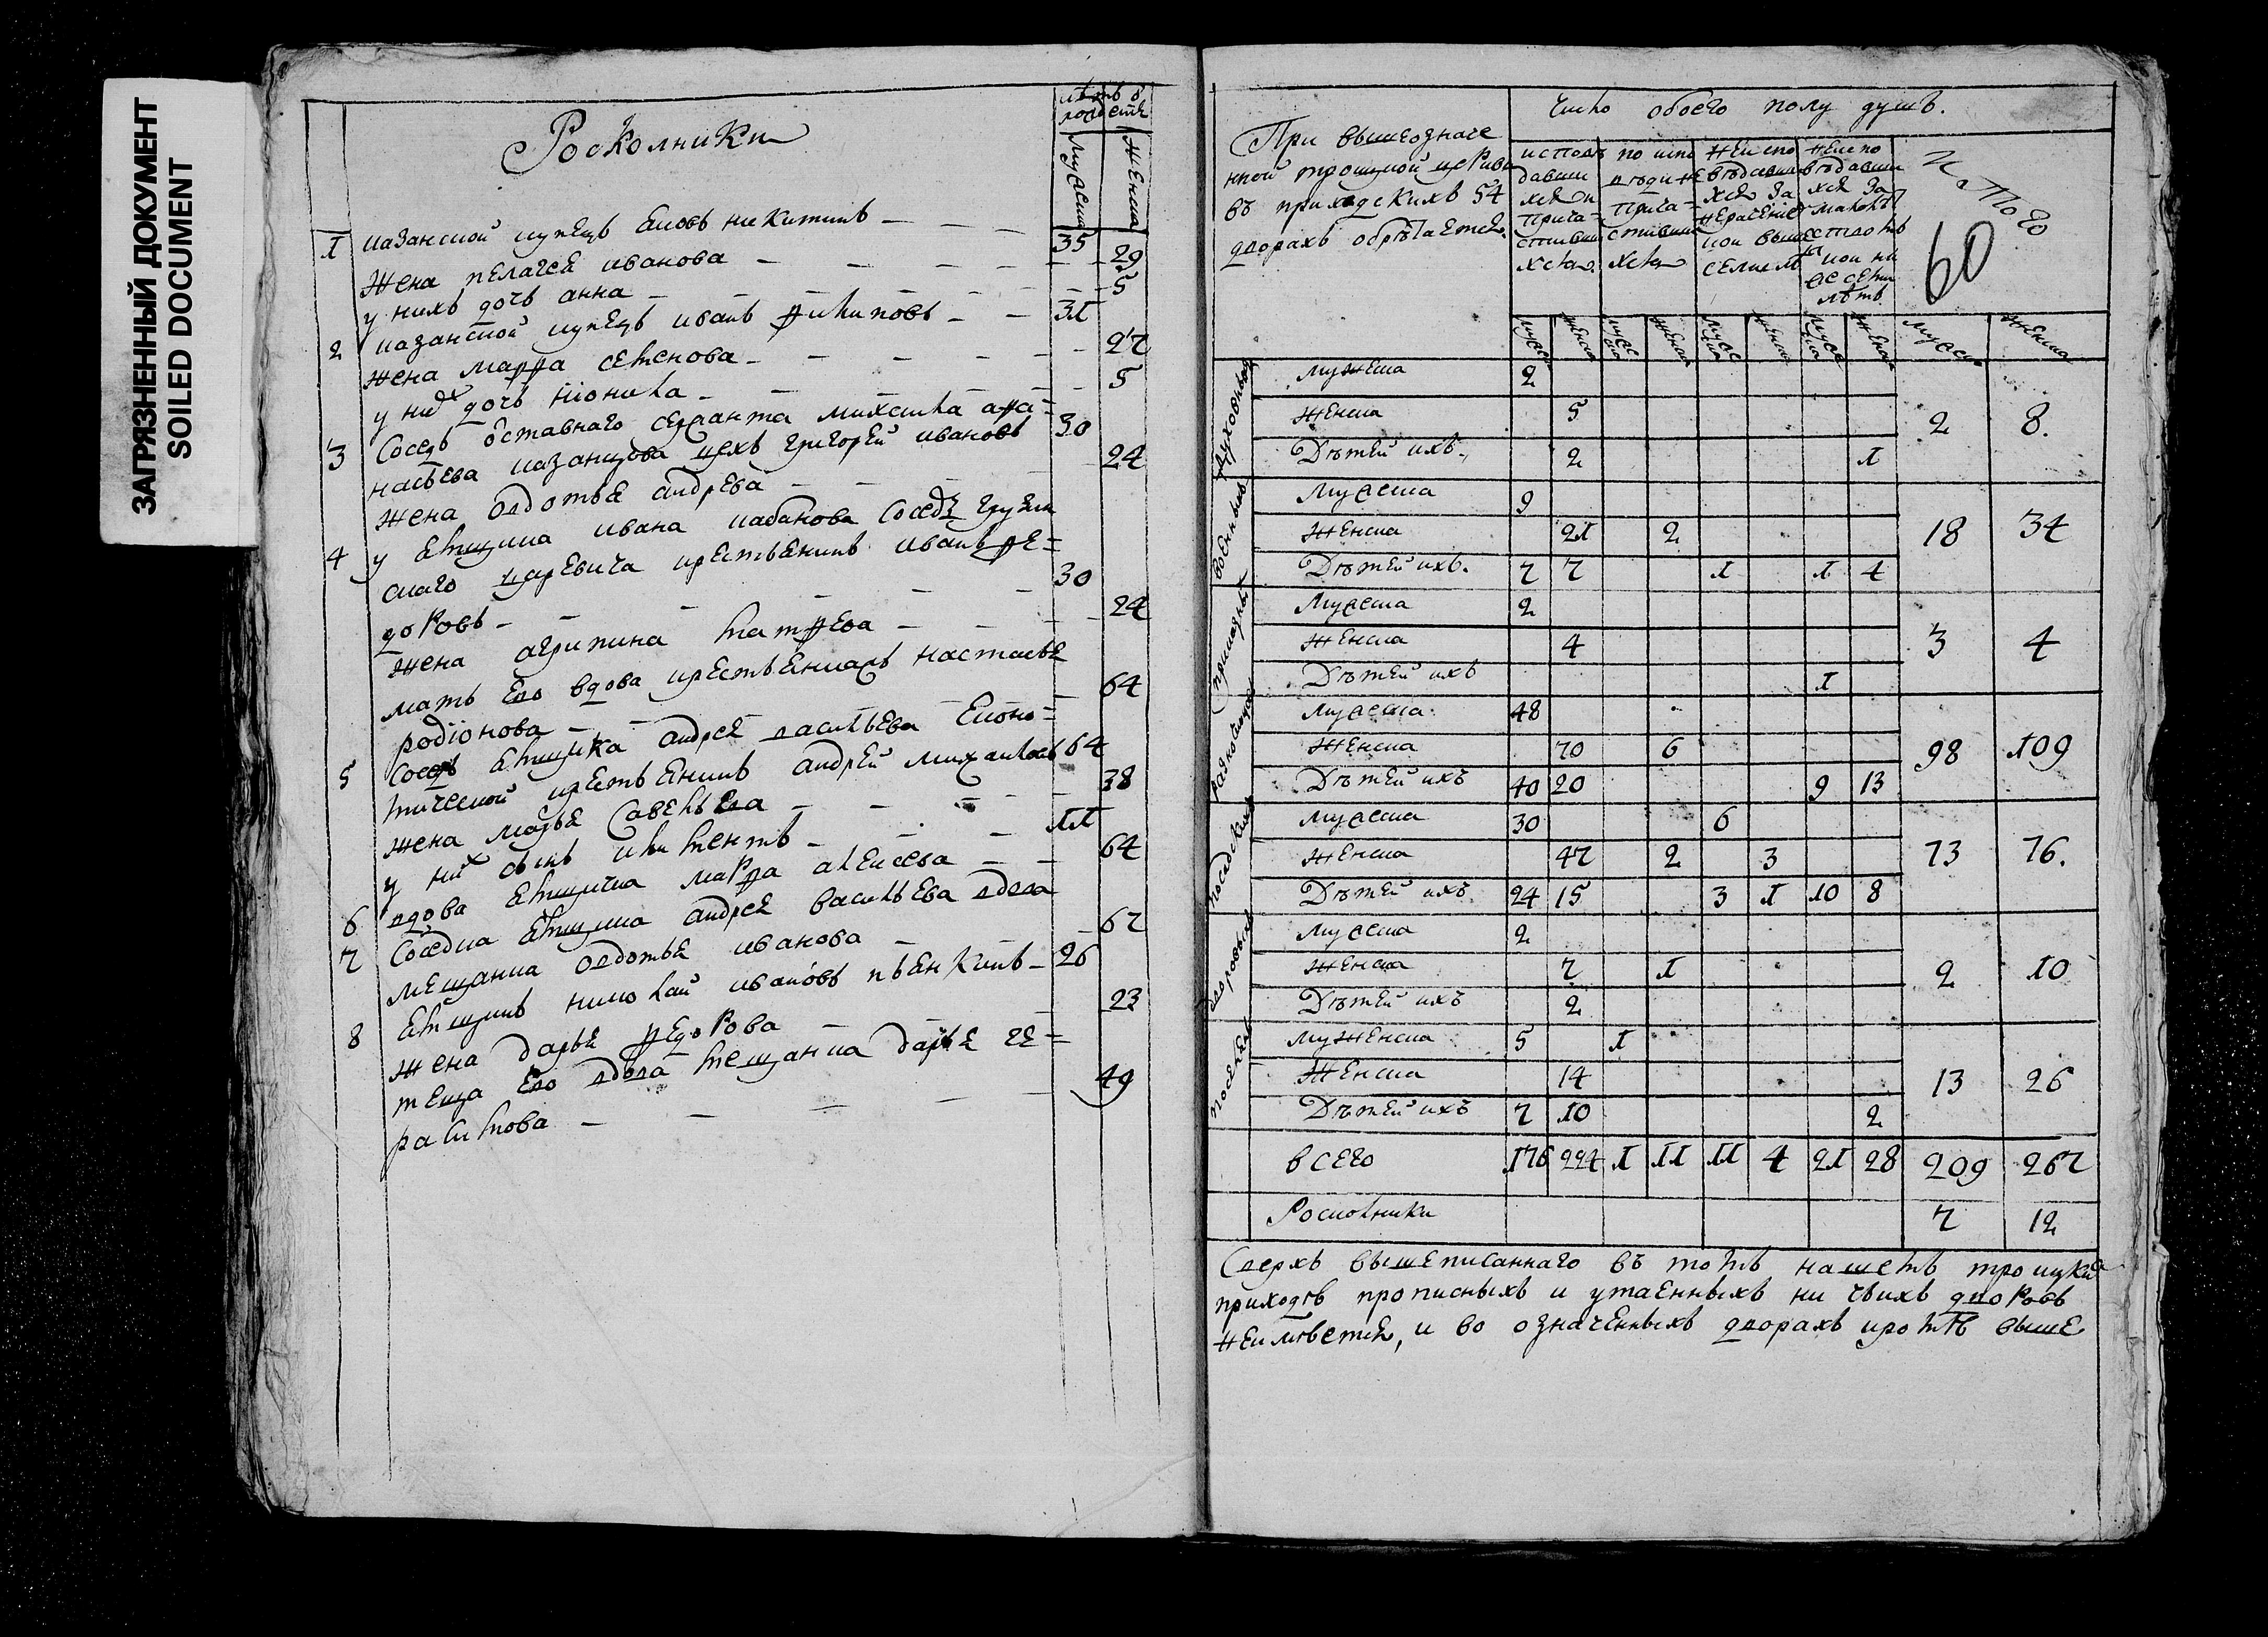 ЗАГРЯЗНЕННЫЙ ДОКУМЕНТ
SOILED DOCUMENT
Росколники
лѣтъ ѿ рождества
мужеска женска
1 казанской купецъ яковъ никитинъ 35
жена пелагея иванова 29
у нихъ дочь анна 5
2 казанской купецъ иванъ филиповъ 31
жена марфа семенова 27
у них дочь 5
3 Соседъ отставнаго сержанта михаила афа=
насьева казанцова цехъ григорей ивановъ 30
жена овдотья андреева 24
4 у ямщика ивана кабанова соседъ грузин
скаго царевича крестьенинъ иванъ фе=
доровъ 30
жена агрипина матфева 24
мать ево вдова крестьенискаѧ настасья
родіонова 64
5 Соседъ ямщика андрея васильева Економ=
мической крестьенинъ андрей михаиловъ 64
жена марья савельева 38
у них сынъ климентъ 11
6 вдова ямщичка марфа алексева 64
7 Соседка ямщика андрея васильева вдова
мещанка овдотья иванова 67
8 ямщикъ николай ивановъ пьянкинъ 26
жена дарья федорова 23
теща ево вдова мещанка дарья ге=
расимова 49
При вышеозначе
нной троицкой церкви
въ приходскихъ 54
дворахъ обрѣтается.
число обоего полу душъ.
исповѣ
давши
хся и
прича=
стивши
хся
по испо
вѣди не
прича=
стивши
хся
Неиспо
вѣдавши
хся за
нерачение
Неиспо
вѣдавши
хся за
малолѣ
тством
Итого
60
мужеска женска мужеска женска мужеска женска мужеска женска мужеска женска
духовныя
мужеска 2
женска 5 2 8.
Дѣтей ихъ 2 1
военныя
мужеска 9
женска 21 2 18 34
Дѣтей ихъ. 7 7 1 1 4
приказныя
мужеска 2
женска 4 3 4
Дѣтей ихъ 1
разночинцы
мужеска 48
женска 70 6 98 109
Дѣтей ихъ 40 20 9 13
посадския
мужеска 30 6
женска 47 2 3 73 76.
Дѣтей ихъ 24 15 3 1 10 8
дворовыя
мужеска 2
женска 7 1 2 10
Дѣтей ихъ 2
поселяня
мужеска 5 1
женска 14 13 26
Дѣтей ихъ 7 10 2
всего 176 224 1 11 11 4 21 28 209 267
Росколники 7 12
Сверхъ вышеписаннаго въ томъ нашемъ троицкомъ
приходѣ прописныхъ и утаенныхъ ни чьихъ дворовъ
неимѣется, и во означенныхъ дворахъ кромѣ выше